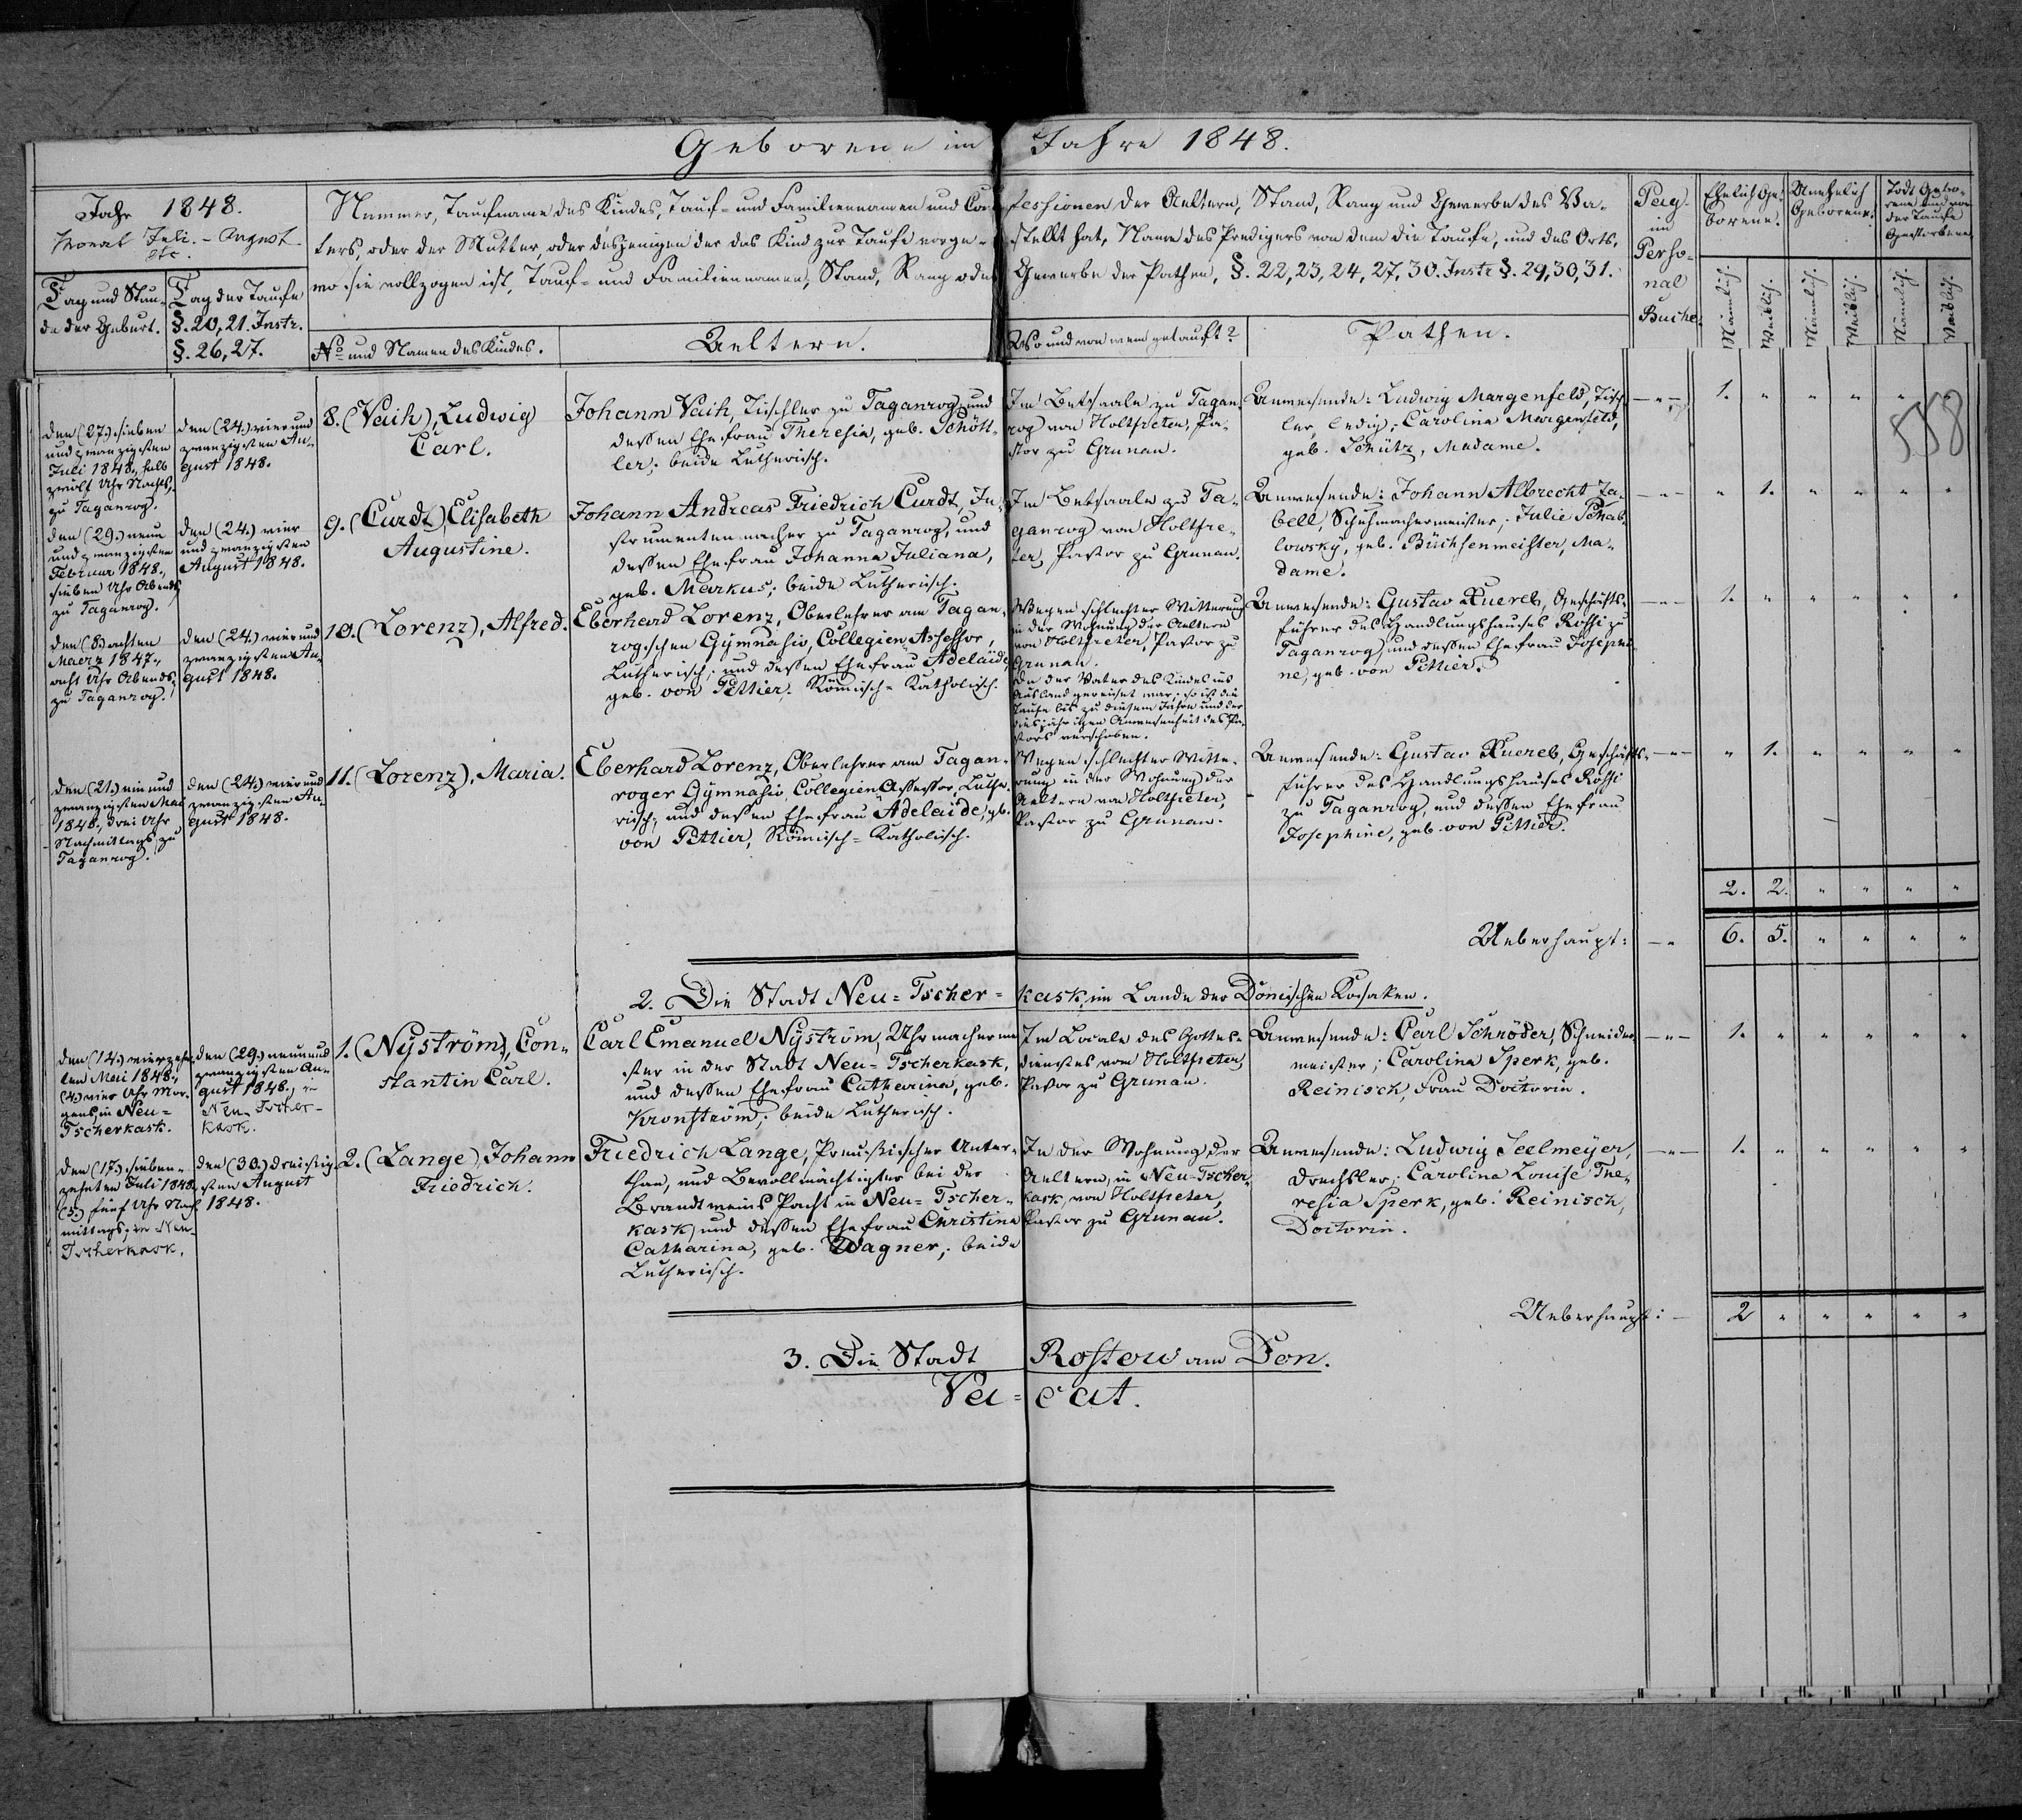 Geborene im Jahre 1848.
Jahr 1848.
Monat Juli. - August
etc.
Tag und Stun-
de der Geburt.
Tag der Taufe
§. 20, 21. Instr.
§. 26, 27.
Nummer, Taufname des Kindes, Tauf- und Familiennamen und Con-fessionen der Aeltern, Stand, Rang und Gewerbe des Va-
ters, oder der Mutter, oder desjenigen der das Kind zur Taufe vorge-stellt hat, Name des Predigers von dem die Taufe, und des Orts,
wo sie vollzogen ist, Tauf- und Familiennamen, Stand, Rang oder Gewerbe der Pathen, §. 22, 23, 24, 27, 30. Instr. §. 29, 30, 31.
No und Namen des Kindes.
Aeltern.
Wo und von wem getauft?
Pathen.
Pag.
im
Perso-
nal
Buche.
Ehelich Ge-
borene.
Unehelich
Geborene.
Todt Gebo-
rene und vor
der Taufe
Gestorbene
Männlich.
Weiblich.
Männlich.
Weiblich.
Männlich.
Weiblich.
558
den (27.) sieben
und zwanzigsten
Juli 1848., halb
zwölf Uhr Nachts,
zu Taganrog.
den (24.) vier und
zwanzigsten Au-
gust 1848.
8. (Vaih), Ludwig
Carl.
Johann Vaih, Tischler zu Taganrog, und
dessen Ehefrau Theresia, geb. Schött-
ler; beide Lutherisch.
Im Betsaale zu Tagan-
rog von Holtfreter, Pa-
stor zu Grunau.
Anwesende: Ludwig Margenfeld, Tisch-
ler, ledig; Carolina Margenfeld,
geb. Schütz, Madame.
1.
den (29.) neun
und zwanzigsten
Februar 1848.,
sieben Uhr Abends,
zu Taganrog.
den (24.) vier
und zwanzigsten
August 1848.
9. (Curdt), Elisabeth
Augustine.
Johann Andreas Friedrich Curdt, In-
strumentenmacher zu Taganrog, und
dessen Ehefrau Johanna Juliana,
geb. Markus; beide Lutherisch.
Im Betsaale zu Ta-
ganrog von Holtfre-
ter, Pastor zu Grunau.
Anwesende: Johann Albrecht Za-
bell, Schuhmachermeister; Julie Schab-
lowsky, geb. Büchsenmeister, Ma-
dame.
1.
den (8.) achten
Maerz 1847.,
acht Uhr Abends,
zu Taganrog.
den (24.) vier und
zwanzigsten Au-
gust 1848.
10. (Lorenz), Alfred.
Eberhard Lorenz, Oberlehrer am Tagan-
rogschen Gymnasio, Collegien Assessor,
Lutherisch; und dessen Ehefrau Adelaide,
geb. von Pittier, Römisch-Katholisch.
Wegen schlechter Witterung
in der Wohnung der Aeltern
von Holtfreter, Pastor zu
Grunau.
Da der Vater des Kindes ins
Ausland gereiset war, so ist die
Taufe bis zu diesem Jahre und der
diesjährigen Anwesenheit des Pa-
stors verschoben.
Anwesende: Gustav Kuereb, Geschäfts-
führer des Handlungshauses Rossi zu
Taganrog, und dessen Ehefrau Josephi-
ne, geb. von Pittier.
1.
den (21.) ein und
zwanzigsten Mai
1848., drei Uhr
Nachmittags, zu
Taganrog.
den (24.) vier und
zwanzigsten Au-
gust 1848.
11. (Lorenz), Maria.
Eberhard Lorenz, Oberlehrer am Tagan-
roger Gymnasio, Collegien Assessor, Luthe-
risch, und dessen Ehefrau Adelaide, geb.
von Pittier, Römisch-Katholisch.
Wegen schlechter Witte-
rung in der Wohnung der
Aeltern von Holtfreter,
Pastor zu Grunau.
Anwesende: Gustav Kuereb, Geschäfts-
führer des Handlungshauses Rossi
zu Taganrog, und dessen Ehefrau
Josephine, geb. von Pittier.
1.
2. 2.
Ueberhaupt: 6. 5.
2. Die Stadt Neu-Tscher-kask, im Lande der Donischen Kosaken.
den (14.) vierzehn-
ten Mai 1848.,
(4) vier Uhr Mor-
gens, in Neu-
Tscherkask.
den (29.) neun und
zwanzigsten Au-
gust 1848., in
Neu-Tscher-
kask.
1. (Nyström), Con-
stantin Carl.
Carl Emanuel Nyström, Uhrmachermei-
ster in der Stadt Neu-Tscherkask,
und dessen Ehefrau Catharina, geb.
Kronström; beide Lutherisch.
Im Locale des Gottes-
dienstes von Holtfreter,
Pastor zu Grunau.
Anwesende: Carl Schröder, Schneider-
meister; Carolina Sperk, geb.
Reinisch, Frau Doctorin.
1.
den (17.) sieben-
zehnten Juli 1848.
(5.) fünf Uhr Nach-
mittags, in Neu-
Tscherkask.
den (30.) dreißig-
sten August
1848.
2. (Lange), Johann
Friedrich.
Friedrich Lange, Preußischer Unter-
than, und Bevollmächtigter bei der
Brandtweins Pacht in Neu-Tscher-
kask, und dessen Ehefrau Christina
Catharina, geb. Wagner; beide
Lutherisch.
In der Wohnung der
Aeltern, in Neu-Tscher-
kask, von Holtfreter,
Pastor zu Grunau.
Anwesende: Ludwig Seelmeyer,
Drechsler; Carolina Louise The-
resia Sperk, geb. Reinisch,
Doctorin.
1.
Ueberhaupt: 2
3. Die Stadt Rostow am Don.
Va-cat.